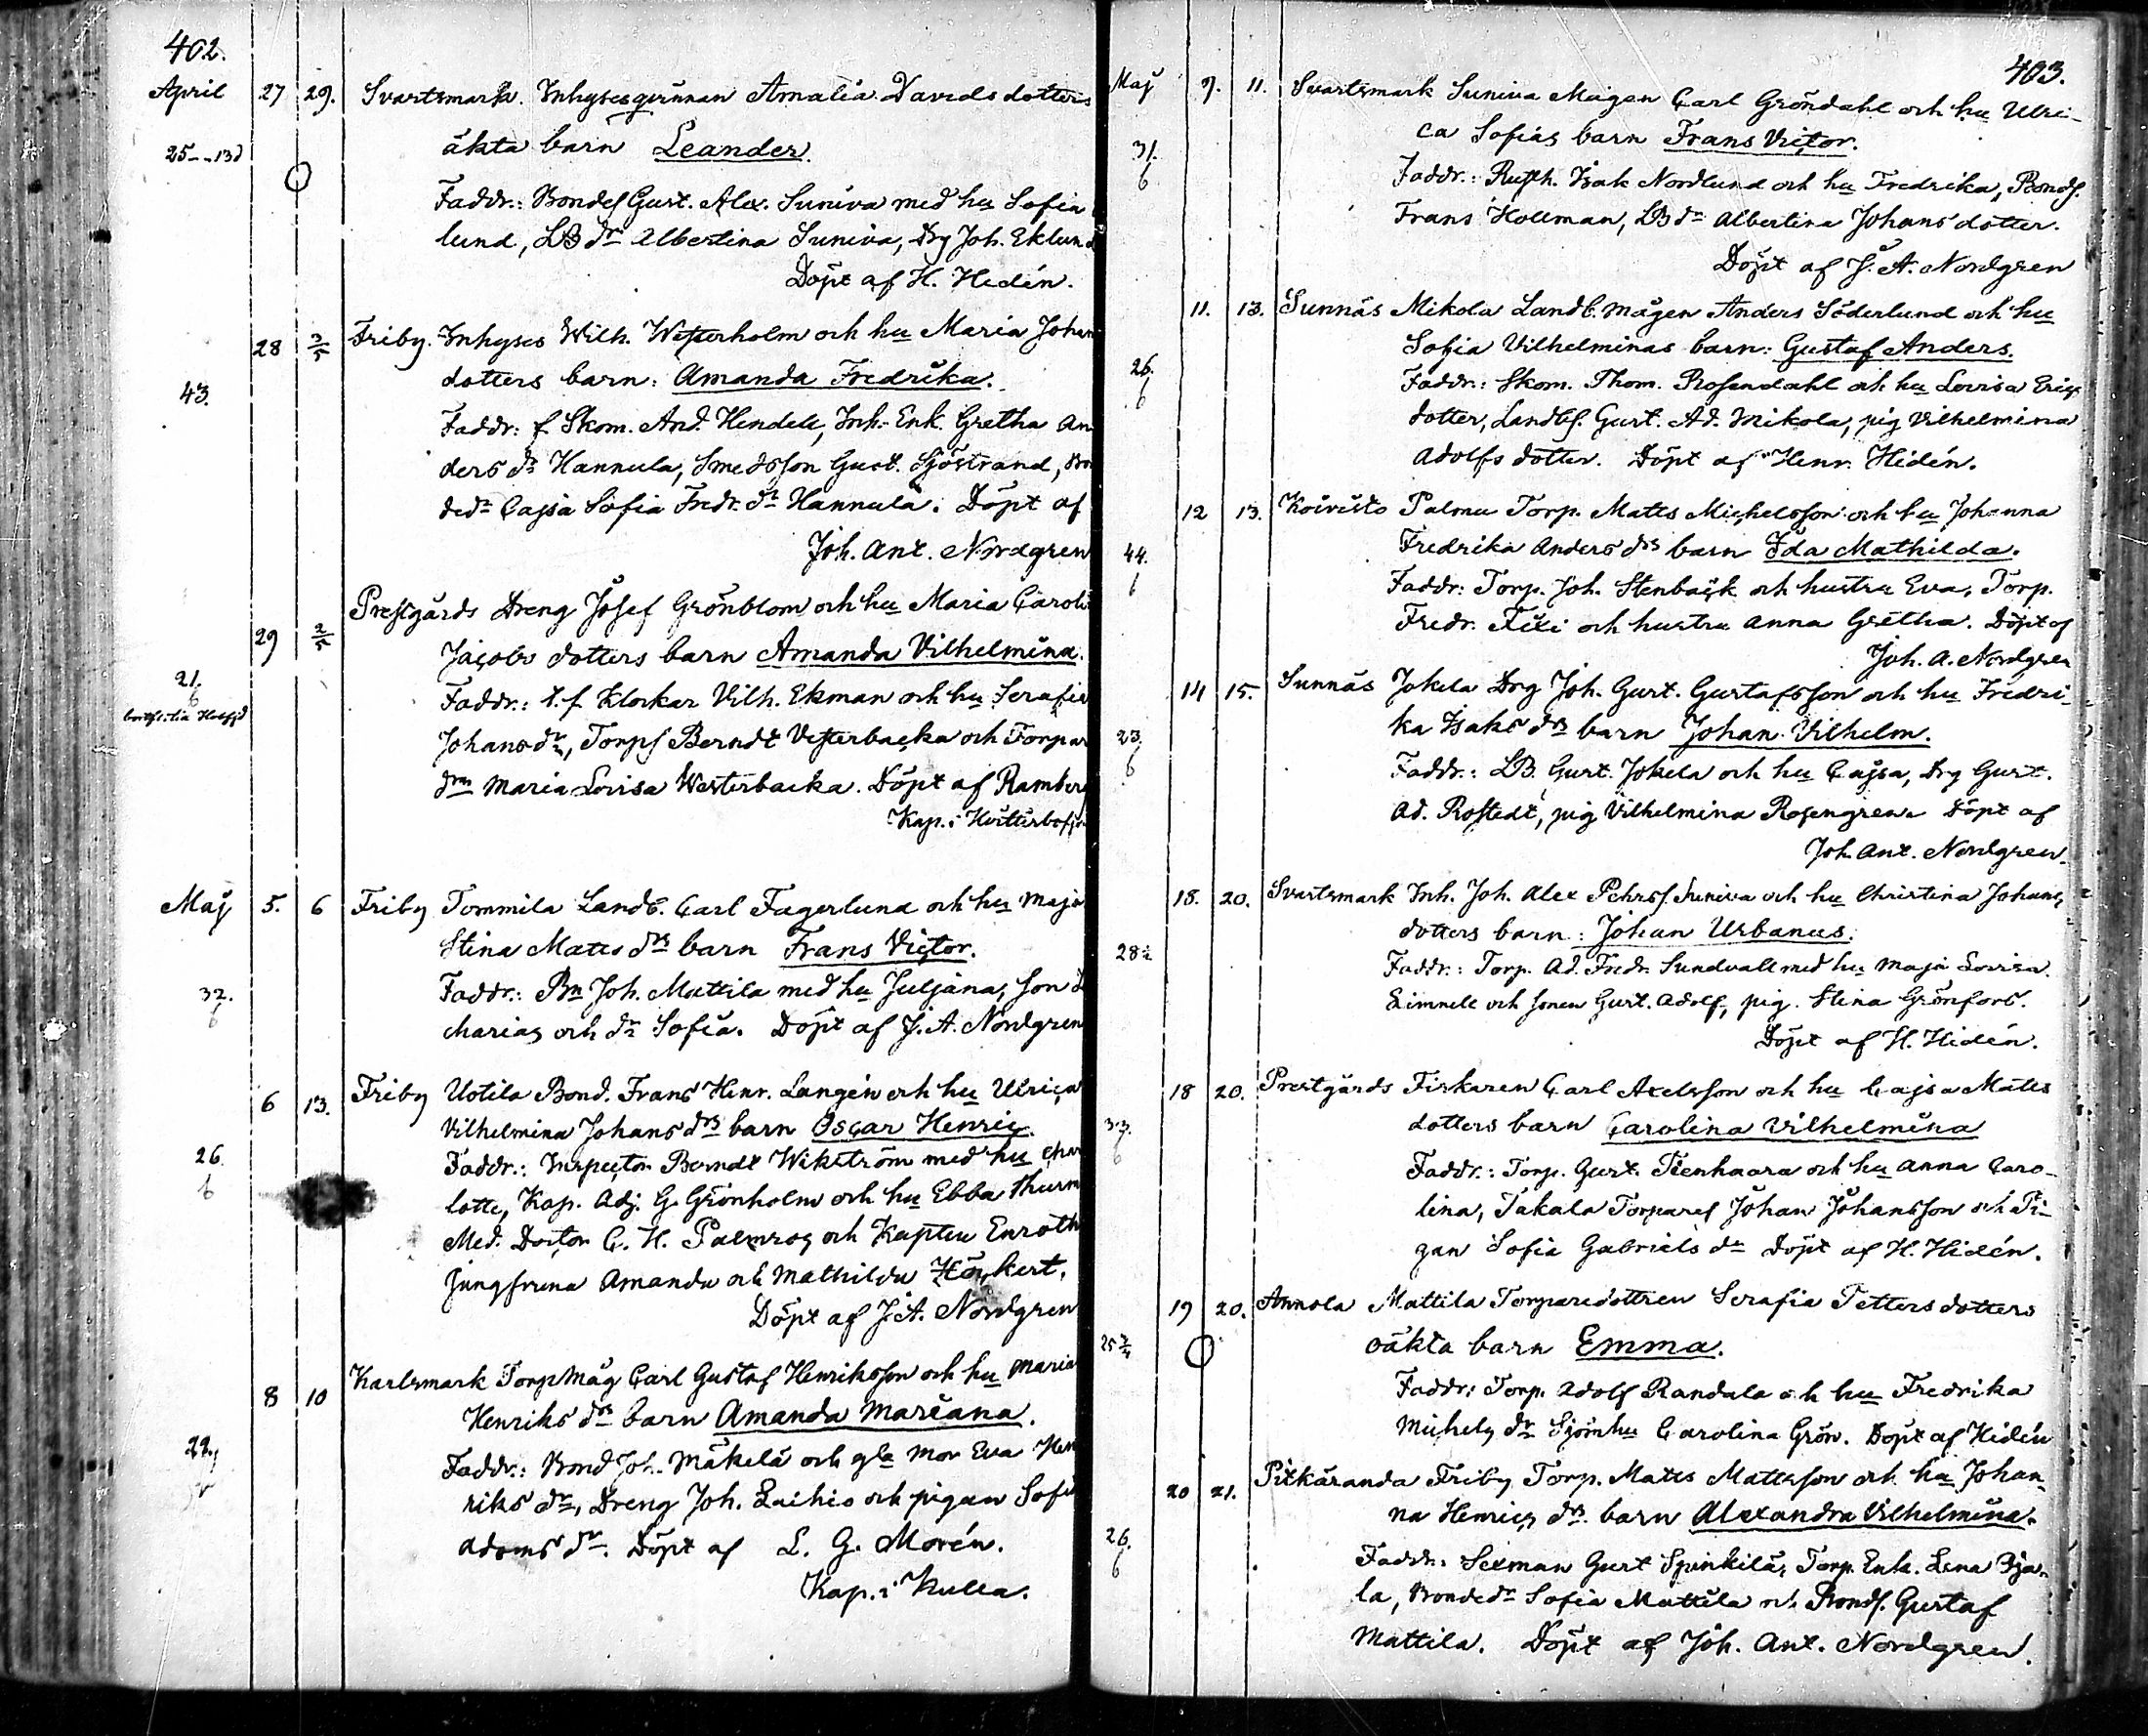 402.
April 27 29. Svartsmark. Inhysesqvinnan Amalia Davidsdotters
25 - - 13d äkta barn Leander.
Faddr.: Bondes Gust. Alex. Suniva med hu Sofia
lund, LB dr Albertina Suniva, Drg Joh. Eklund
Döpt af H. Hidén.
28 3/5 Friby. Inhyses Wilh. Westerholm och hu Maria Johan
43. dotters barn: Amanda Fredrika.
Faddr: f. Skom. And. Hendell, Inh. Enk. Gretha An
ders dr Hannula, Smedsson Gust. Sjöstrand, Bon
dedr Cajsa Sofia Fredr. dr Hannula. Döpt af
Joh. Ant. Nordgren
29 2/5 Prestgårds Dreng Josef Grönblom och hu Maria Caroli
Jacobs dotters barn Amanda Vilhelmina.
21.
6
Faddr.: t.f. Klockar Vilh. Ekman och hu Serafia
Johans dr, Torps Berndt Vesterbacka och Torpar
drn Maria Lovisa Westerbacka. Döpt af Ramberg
Kap. i
Maj 5. 6 Friby Tommila Landb. Carl Fagerlund och hu Maja
Stina Matts drs barn Frans Victor.
32.
6
Faddr.: Bn Joh. Mattila med hu Juljana, son
charias och dr Sofia. Döpt af J. A. Nordgren
6 13. Friby Uotila Bond. Frans Henr. Langén och hu Ulrica
Vilhelmina Johans drs barn Oscar Henric.
26.
6
Faddr.: Inspector Berndt Wikström med hu Char
lotte, Kap. Adj. G. Grönholm och hu Ebba Thurm
Med. Doctor C. H. Palmros och Kapten Enroth
Jungfruna Amanda och Mathilda Höckert.
Döpt af J. A. Nordgren
8 10 Karlsmark Torp Måg Carl Gustaf Henriksson och hu Maria
Henriks drs barn Amanda Mariana.
22.
Faddr.: Bond Joh. Mäkelä och gla Mor Eva Hen
riks dr, Dreng Joh. Laihio och pigan Sofia
Adams dr. Döpt af L. G. Morén.
Kap. i Kulla.
403.
Maj 9. 11. Svartsmark Suniva Mågen Carl Gröndahl och hu Ulri-
ca Sofias barn Frans Victor.
31.
6
Faddr.: Rusth. Isak Nordlund och hu Fredrika, Bonds.
Frans Hollman, LB dr Albertina Johans dotter.
Döpt af J. A. Nordgren
11. 13. Sunnäs Mikola Landb. mågen Anders Söderlund och hu
Sofia Vilhelminas barn: Gustaf Anders.
26.
6
Faddr.: Skom. Thom. Rosendahl och hu Lovisa Erics
dotter, Landbs. Gust. Ad. Mikola, pig Vilhelmina
Adolfs dotter. Döpt af Henr. Hidén.
12 13. Koivisto Palmu Torp. Matts Michelsson och hu Johanna
44.
6
Fredrika Anders drs barn Ida Mathilda.
Faddr: Torp. Joh. Stenbäck och hustru Eva, Torp.
Fredr. Fixi och hustru Anna Gretha. Döpt af
Joh. A. Nordgren
14 15. Sunnäs Jokela Drg Joh. Gust. Gustafsson och hu Fredri-
ka Isaks drs barn Johan Vilhelm.
23.
6
Faddr.: LB. Gust. Jokela och hu Cajsa, Drg Gust.
Ad. Rostedt, pig Vilhelmina Rosengren. Döpt af
Joh. Ant. Nordgren.
18. 20. Svartsmark Inh. Joh. Alex Pehrss. Suniva och hu Christina Johans
dotters barn: Johan Urbanus.
28
Faddr.: Torp. Ad. Fredr. Sundvall med hu Maja Lovisa.
Limnell och sonen Gust. Adolf, pig. Stina Grönfors.
Döpt af H. Hidén.
18 20. Prestgårds Fiskaren Carl Axelsson och hu Cajsa Matts
33.
6
dotters barn Carolina Vilhelmina
Faddr.: Torp. Gust. Tienhaara och hu Anna Caro-
lina, Takala Torpares Johan Johansson och Pi-
gan Sofia Gabriels dr Döpt af H. Hidén.
19 20. Annola Mattila Torparedottren Serafia Pettersdotters
25 3/4 oäkta barn Emma.
Faddr: Torp. Adolf Randala och hu Fredrika
Michels dr Sjömhu Carolina Grön. Döpt af Hidén
20 21. Pitkäranda Friby Torp. Matts Mattsson och hu Johan-
na Henrics drs barn Alexandra Vilhelmina.
26.
6
Faddr.: Sexman Gust Spinkilä, Torp. Enk. Lena Bja-
la, Bondedr Sofia Mattila och Bonds. Gustaf
Mattila. Döpt af Joh. Ant. Nordgren.